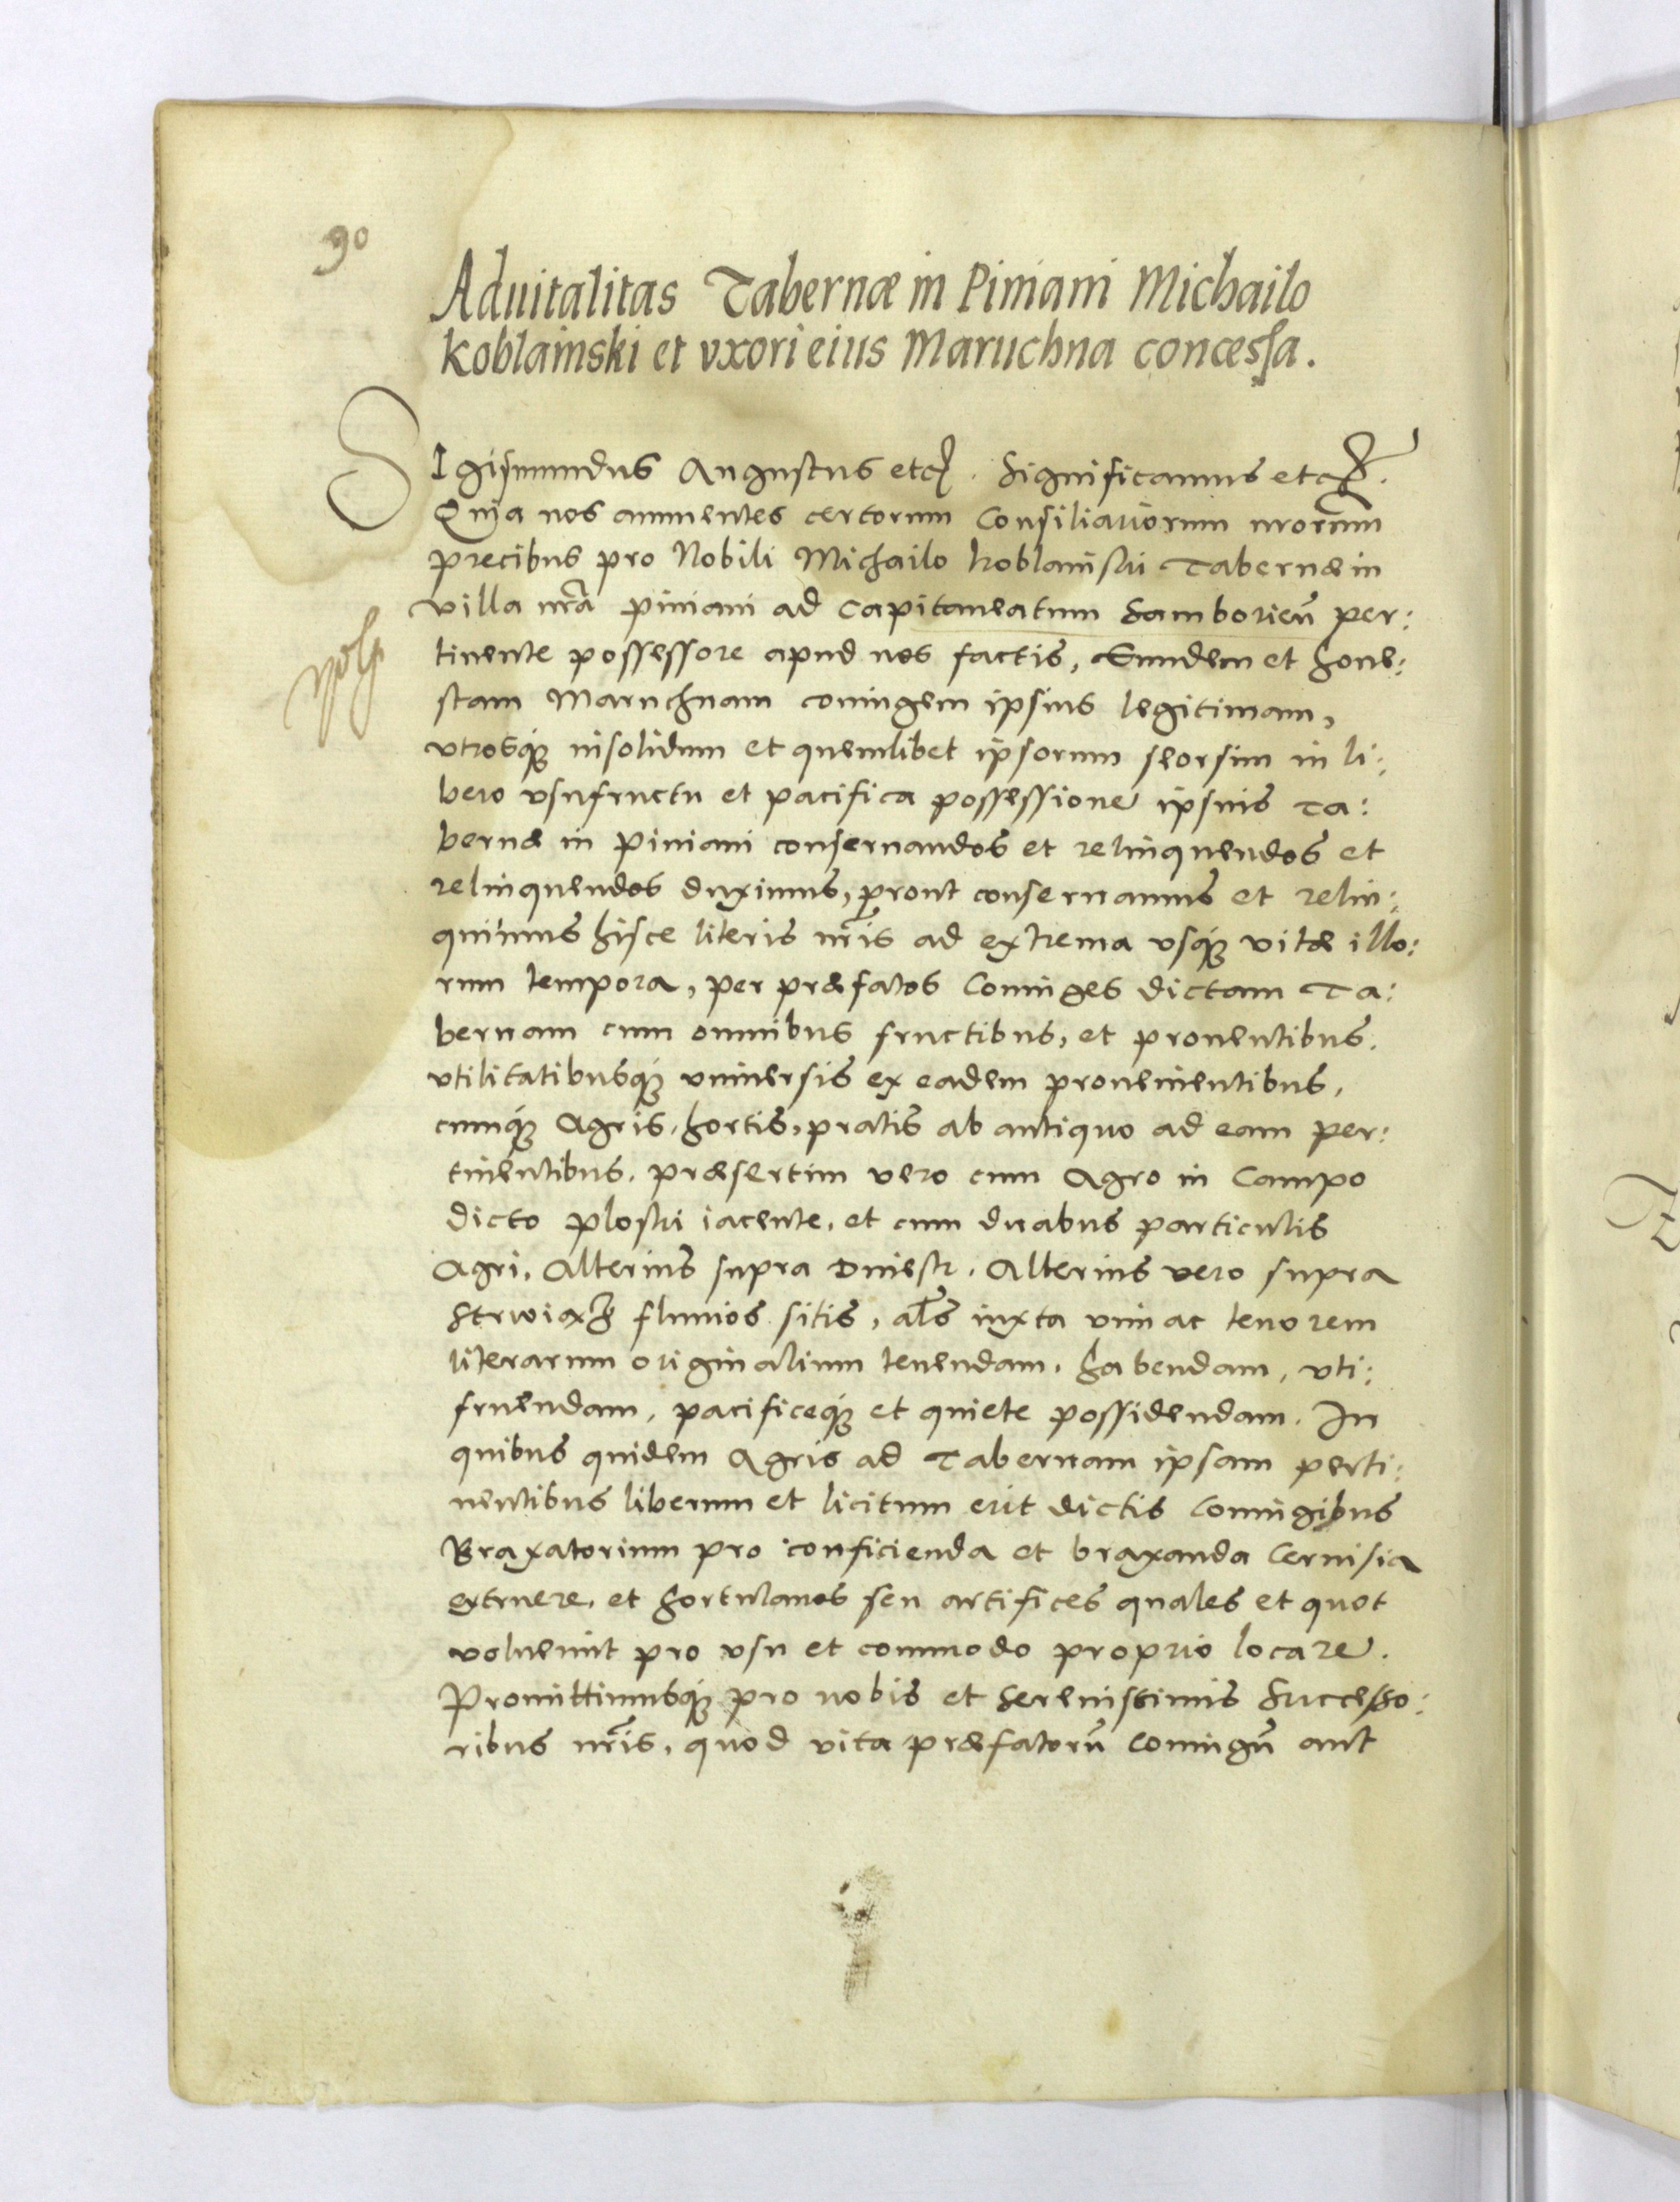 90
Aduitalitas Tabernæ in Piniani Michailo
Koblainski et vxori eius Maruchna concessa.
SIgismundus Augustus etcꝫ. Significamus etcꝫ.
Quia nos annuentes certorum Consiliariorum nrorum
precibus pro Nobili Michailo Koblainski Tabernæ in
villa nra Piniani ad Capitaneatum Samborien per:
tinente possessore apud nos factis, Eundem et hone:
stam Maruchnam coniugem ipsius legitimam,
vtrosque insolidum et quemlibet ipsorum seorsim in li:
bero vsufructu et pacifica possessione ipsius Ta:
bernæ in Piniani conseruandos et relinquendos et
relinquendos duximus, prout conseruamus et relin:
quimus hisce literis nris ad extrema vsque vitæ illo:
rum tempora, per præfatos Coniuges dictam Ta:
bernam cum omnibus fructibus, et prouentibus.
vtilitatibusque vniuersis ex eadem prouenientibus,
cumque Agris, hortis, pratis ab antiquo ad eam per:
tinentibus. præsertim vero cum Agro in Campo
dicto Ploski iacente, et cum duabus particulis
Agri, Alterius supra Dniestr. Alterius vero supra
Strwiąż fluuios sitis, als iuxta vim ac tenorem
literarum originalium tenendam, habendam, vti:
fruendam, pacificeque et quiete possidendam. In
quibus quidem Agris ad Tabernam ipsam perti:
nentibus liberum et licitum erit dictis Coniugibus
Braxatorium pro conficienda et braxanda Ceruisia
extruere, et hortulanos seu artifices quales et quot
voluerint pro vsu et commodo proprio locare.
Promittimusque pro nobis et Serenissimis Successo:
ribus nris, quod vita præfatoru Coniugu aut